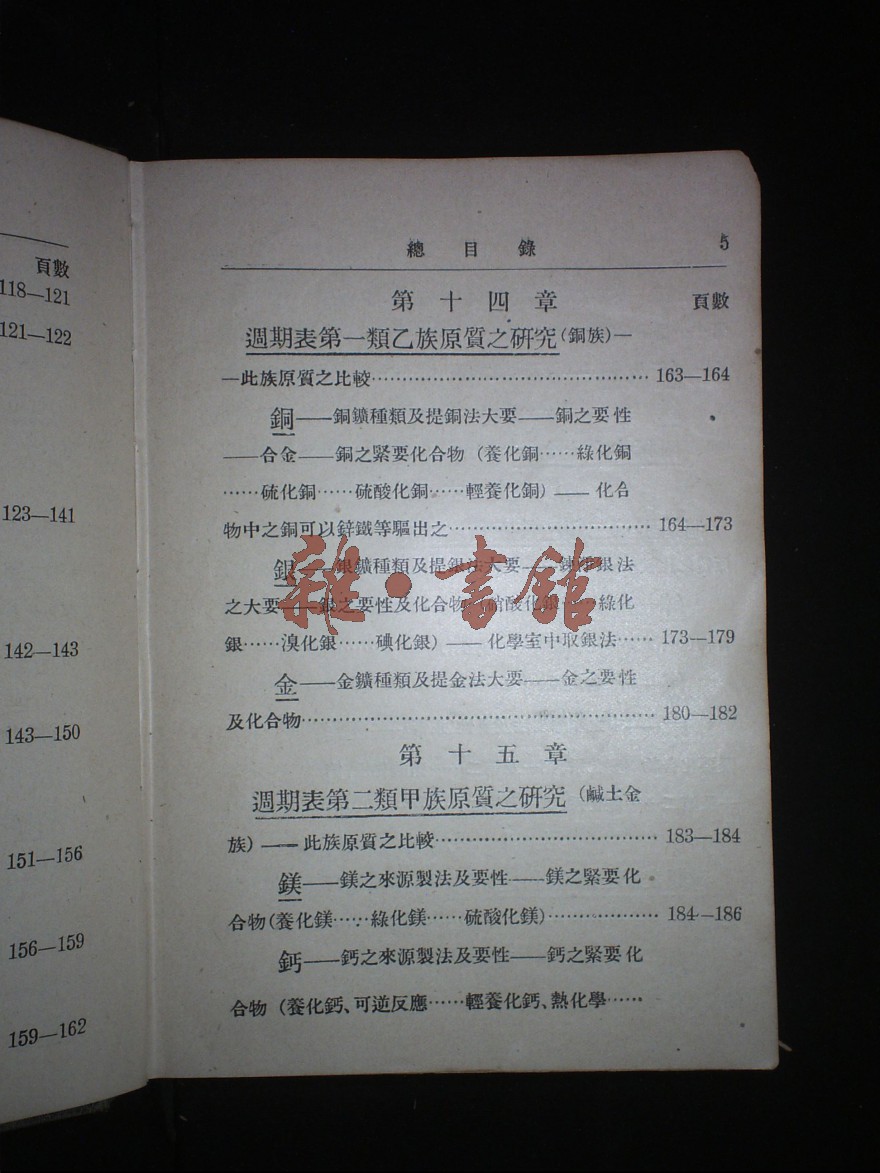 頁數
118—121
121—122
123—141
142—143
143—150
151—156
156—159
159—162
總目錄 5
第十四章 頁數
週期表第一類乙族原質之研究(銅族)—
—此族原質之比較⋯⋯⋯⋯⋯⋯⋯⋯⋯⋯⋯⋯ 163—164
銅——銅鑛種類及提銅法大要——銅之要性
——合金——銅之緊要化合物 (養化銅⋯⋯綠化銅
⋯⋯硫化銅⋯⋯硫酸化銅⋯⋯輕養化銅) —— 化合
物中之銅可以鋅鐵等驅出之⋯⋯⋯⋯⋯⋯⋯⋯ 164—173
銀——銀鑛種類及提銀法大要——銀法
之大要——銀之要性及化合物(硝酸化銀⋯⋯綠化
銀⋯⋯溴化銀⋯⋯碘化銀) —— 化學室中取銀法⋯⋯ 173—179
金——金鑛種類及提金法大要——金之要性
及化合物⋯⋯⋯⋯⋯⋯⋯⋯⋯⋯⋯⋯⋯⋯⋯⋯ 180—182
第十五章
週期表第二類甲族原質之研究 (鹹土金
族) —— 此族原質之比較⋯⋯⋯⋯⋯⋯⋯⋯⋯ 183—184
鎂——鎂之來源製法及要性——鎂之緊要化
合物(養化鎂⋯⋯綠化鎂⋯⋯硫酸化鎂)⋯⋯⋯⋯ 184—186
鈣——鈣之來源製法及要性——鈣之緊要化
合物 (養化鈣、可逆反應⋯⋯輕養化鈣、熱化學⋯⋯
雜·書館